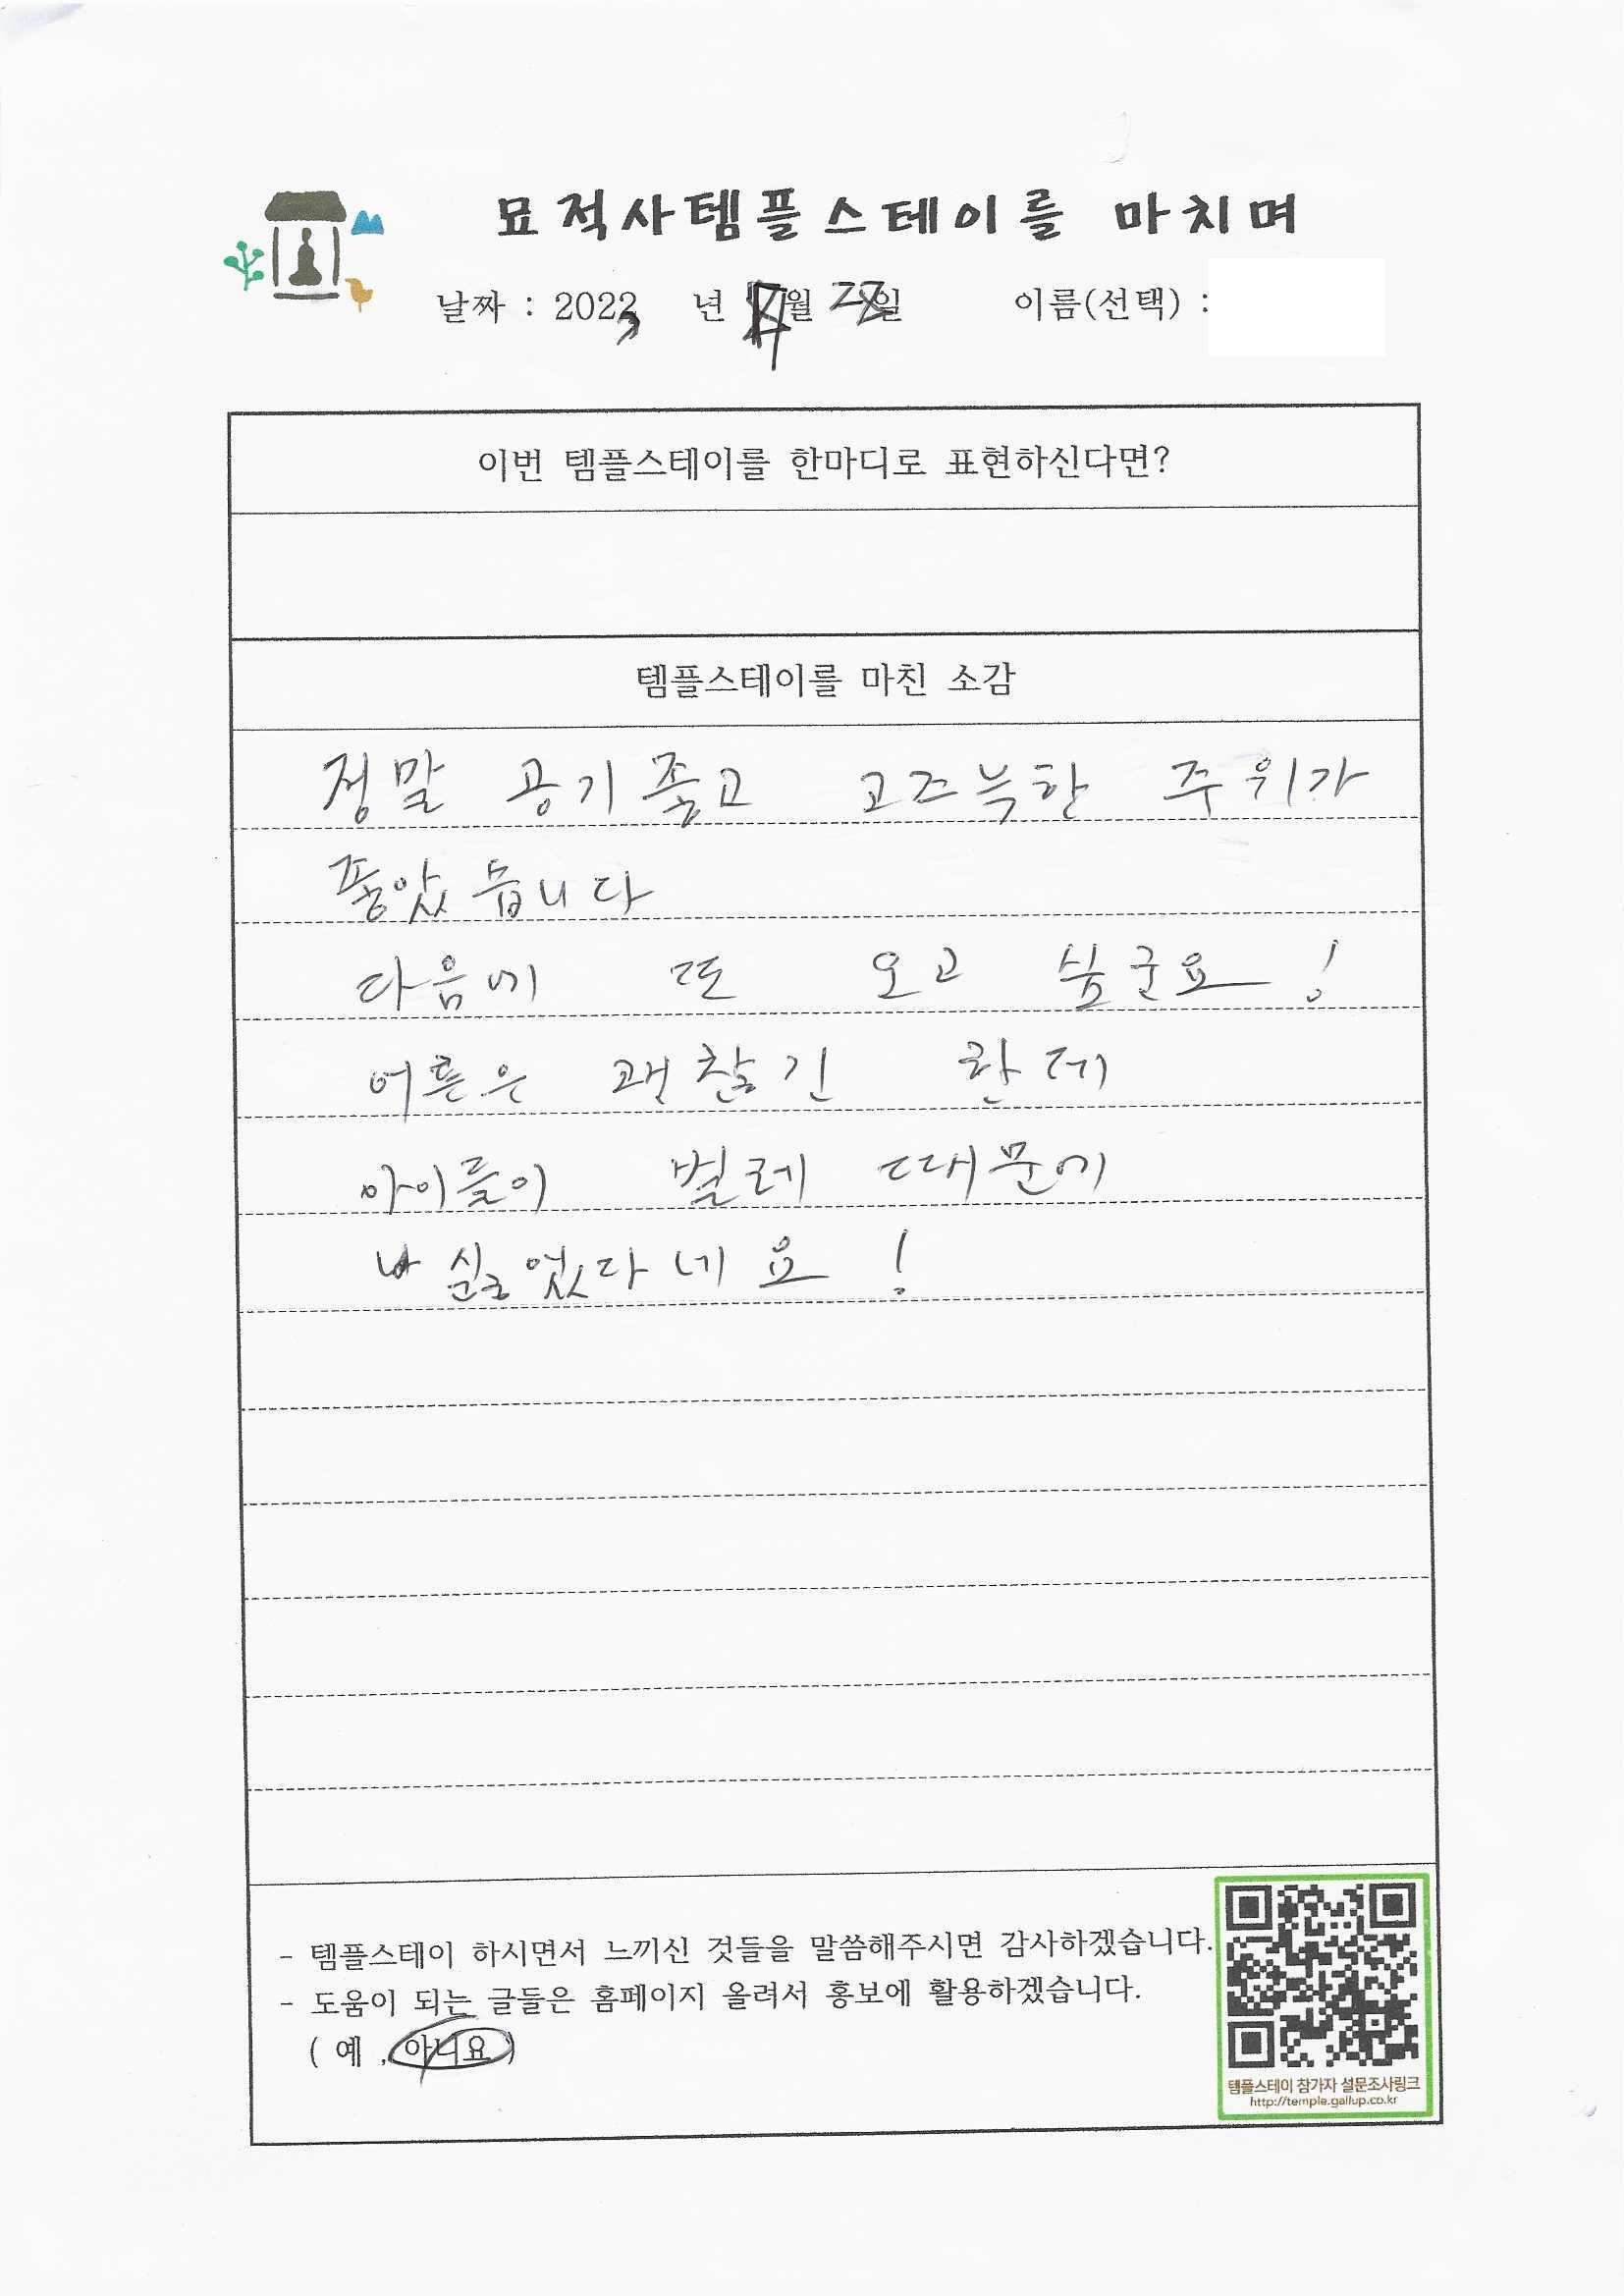 묘적사템플스테이를 마치며
날짜 : 2022 년 월 28일 이름(선택) :
이번 템플스테이를 한마디로 표현하신다면?
템플스테이를 마친 소감
정말 공기좋고 고즈늑한 주위가
좋았습니다
다음에 또 오고 싶군요!
어른은 괜찮긴 한데
아이들이 벌레 때문에
싫었다네요!
- 템플스테이 하시면서 느끼신 것들을 말씀해주시면 감사하겠습니다.
- 도움이 되는 글들은 홈페이지 올려서 홍보에 활용하겠습니다.
( 예 , 아니요 )
템플스테이 참가자 설문조사링크
http://temple.gallup.co.kr